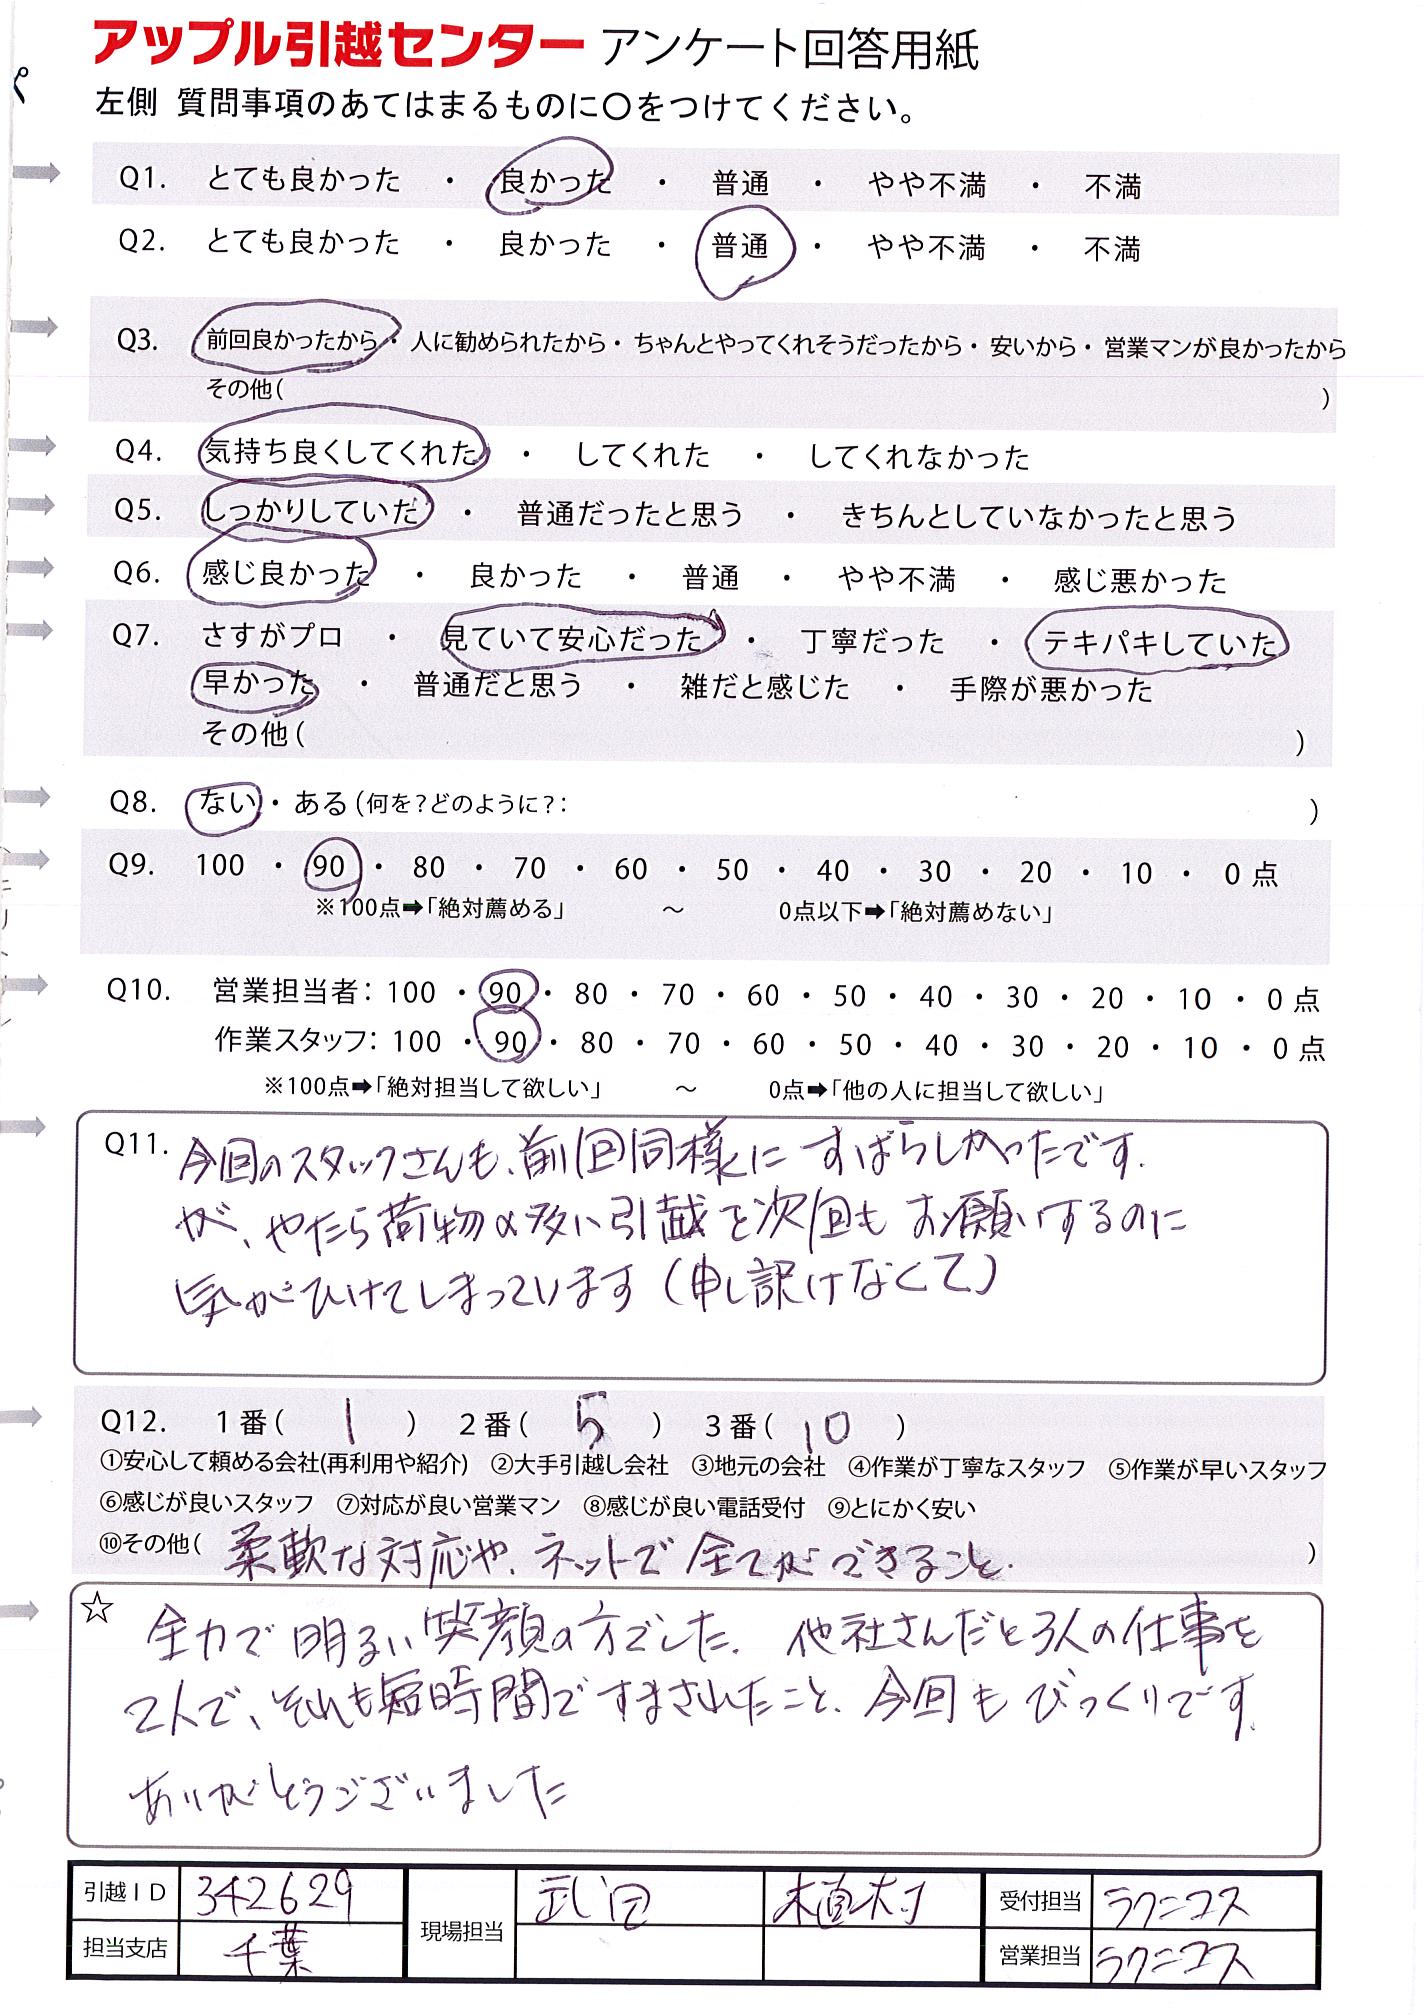 アップル引越センター アンケート回答用紙
左側 質問事項のあてはまるものに〇をつけてください。
Q1. とても良かった ・ 良かった ・ 普通 ・ やや不満 ・ 不満
Q2. とても良かった ・ 良かった ・ 普通 ・ やや不満 ・ 不満
Q3. 前回良かったから・ 人に勧められたから・ ちゃんとやってくれそうだったから・ 安いから・ 営業マンが良かったから
その他( )
Q4. 気持ち良くしてくれた ・ してくれた ・ してくれなかった
Q5. しっかりしていた ・ 普通だったと思う ・ きちんとしていなかったと思う
Q6. 感じ良かった ・ 良かった ・ 普通 ・ やや不満 ・ 感じ悪かった
Q7. さすがプロ ・ 見ていて安心だった ・ 丁寧だった ・ テキパキしていた
早かった ・ 普通だと思う ・ 雑だと感じた ・ 手際が悪かった
その他( )
Q8. ない・ ある(何を?どのように?: )
Q9. 100 ・ 90 ・ 80 ・ 70 ・ 60 ・ 50 ・ 40 ・ 30 ・ 20 ・ 10 ・ 0 点
※100点➡「絶対薦める」 ～ 0点以下➡「絶対薦めない」
Q10. 営業担当者: 100 ・ 90 ・ 80 ・ 70 ・ 60 ・ 50 ・ 40 ・ 30 ・ 20 ・ 10 ・ 0 点
作業スタッフ: 100 ・ 90 ・ 80 ・ 70 ・ 60 ・ 50 ・ 40 ・ 30 ・ 20 ・ 10 ・ 0 点
※100点➡「絶対担当して欲しい」 ～ 0点➡「他の人に担当して欲しい」
Q11. 今回のスタッフさんも、前回同様にすばらしかったです.
が、やたら荷物の多い引越を次回もお願いするのに
気がひけてしまっています(申し訳けなくて)
Q12. 1番( 1 ) 2番( 5 ) 3番( 10 )
①安心して頼める会社(再利用や紹介) ②大手引越し会社 ③地元の会社 ④作業が丁寧なスタッフ ⑤作業が早いスタッフ
⑥感じが良いスタッフ ⑦対応が良い営業マン ⑧感じが良い電話受付 ⑨とにかく安い
⑩その他( 柔軟な対応や、ネットで全てができること. )
☆ 全力で明るい笑顔の方でした. 他社さんだと3人の仕事を
2人で、それも短時間ですまされたこと、今回もびっくりです.
ありがとうございました
引越ID 342629 現場担当 武田 植村 受付担当 ラクニコス
担当支店 千葉 営業担当 ラクニコス